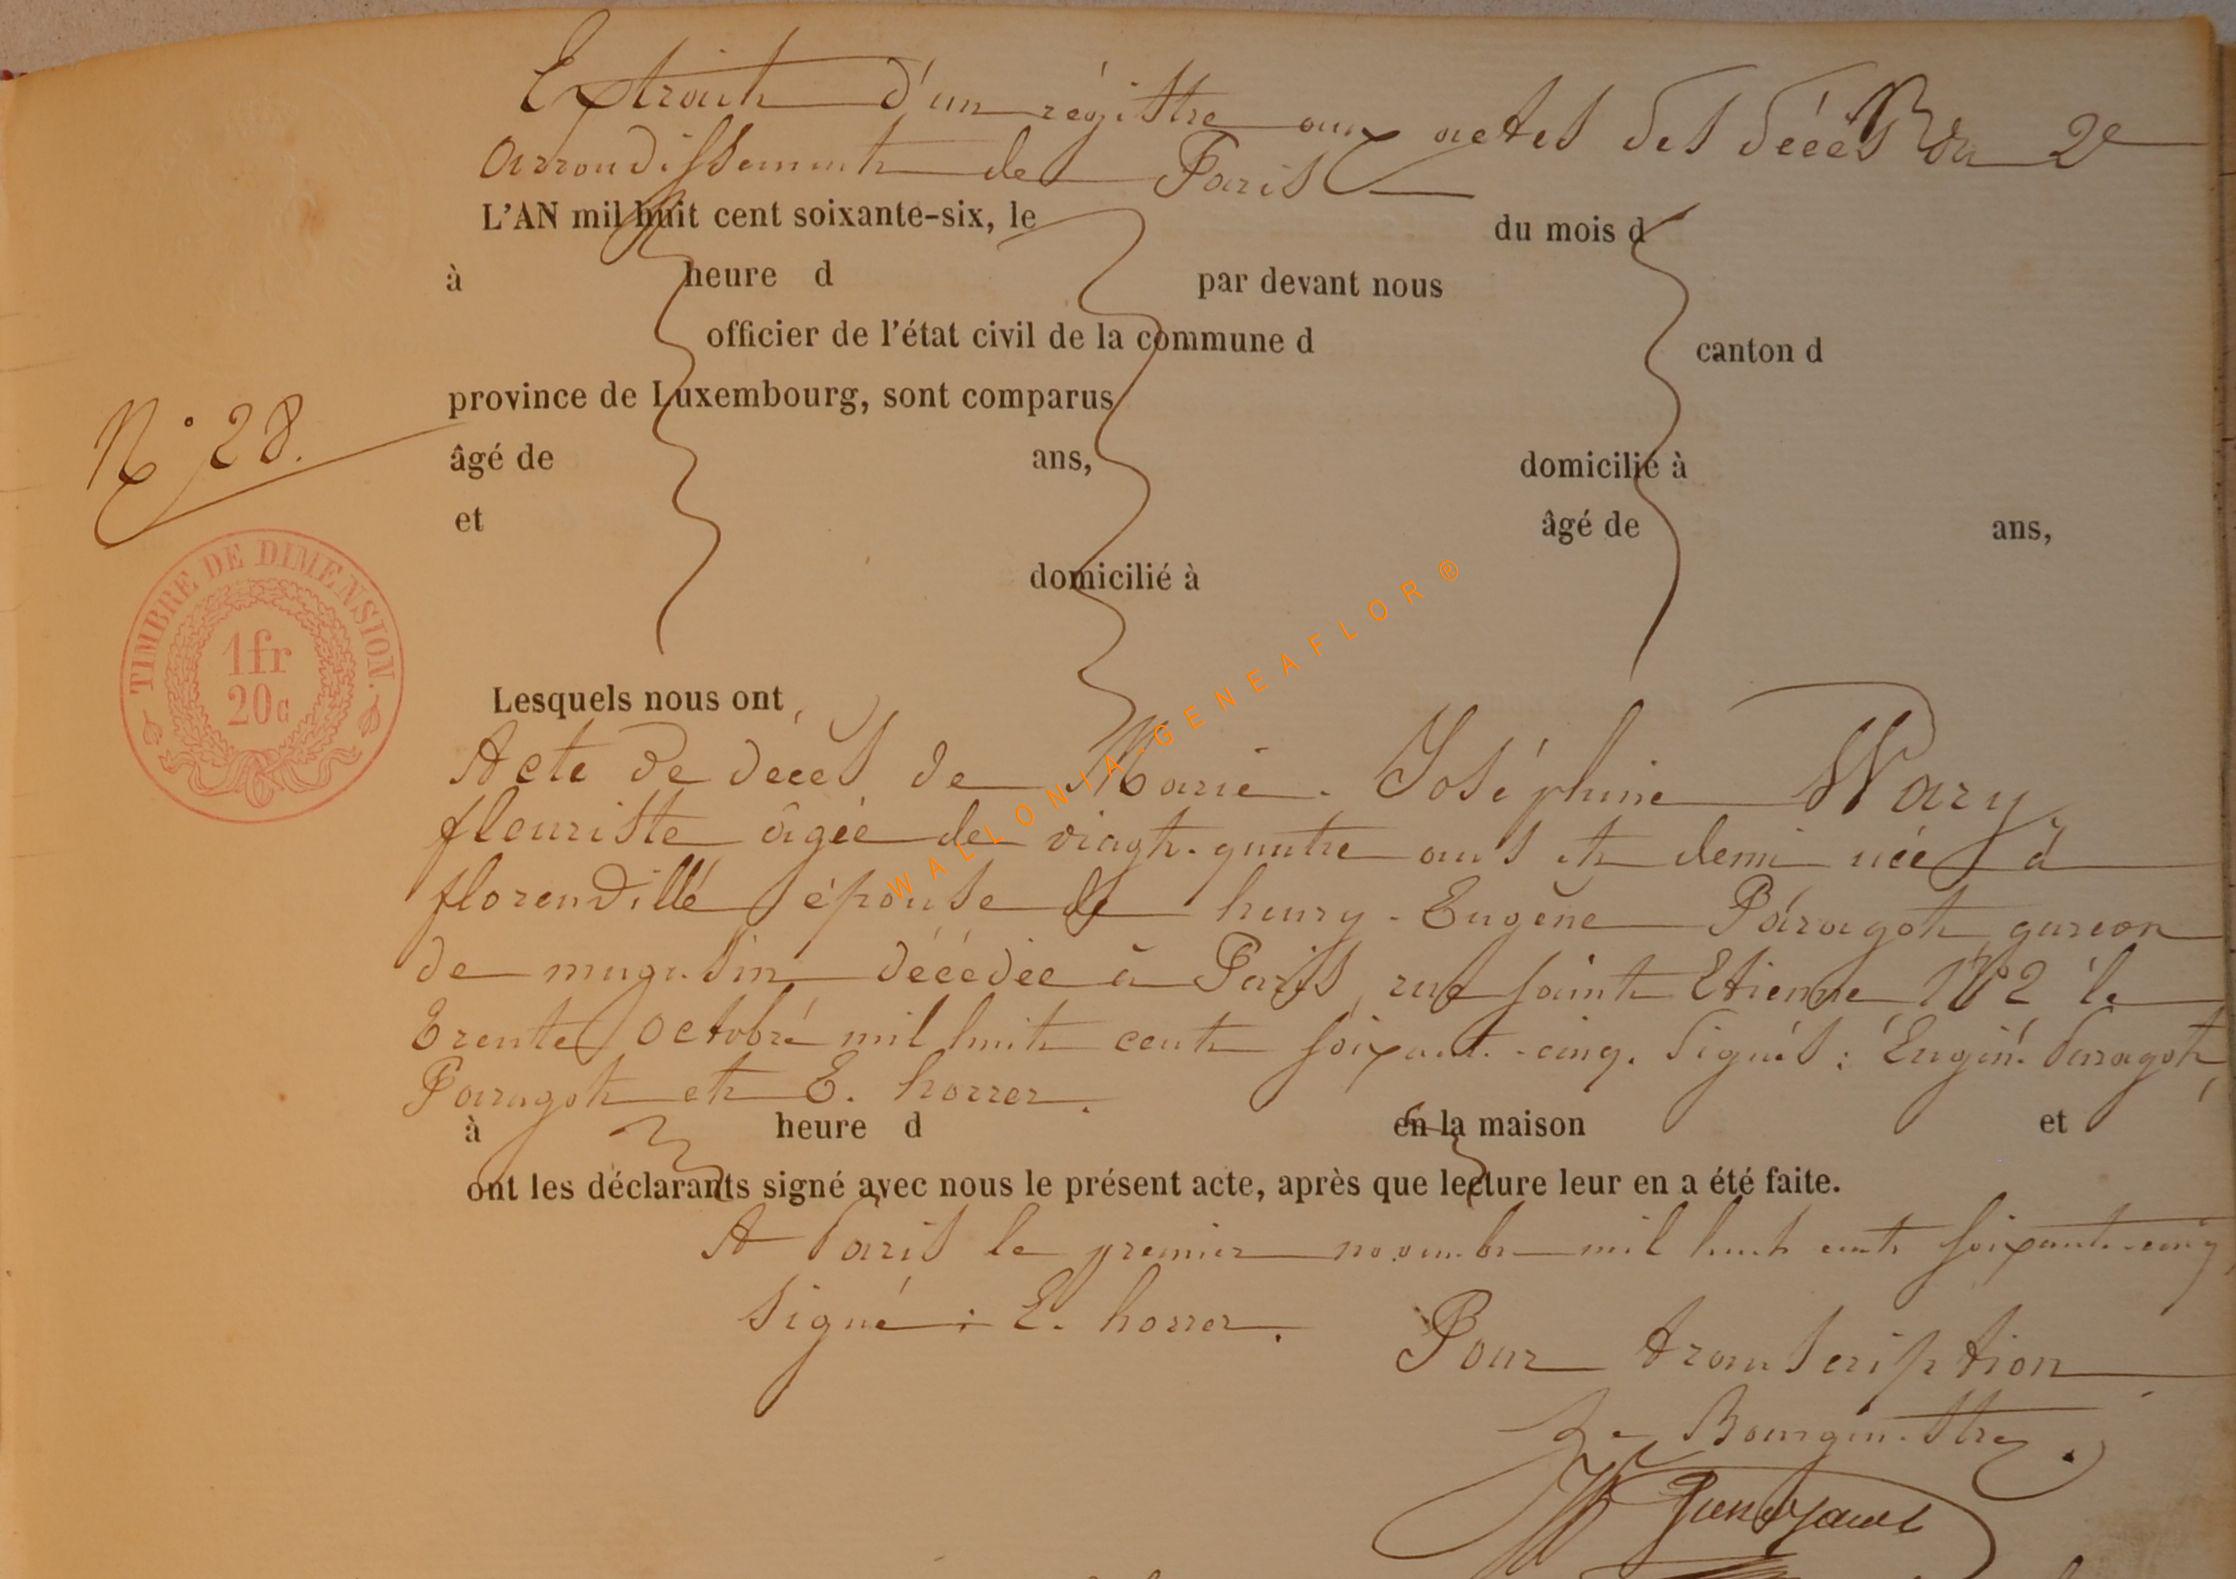 Extrait d'un régistre aux actes des décès du 2e
Arrondissement de Paris
L'AN mil huit cent soixante-six, le du mois d
à heure d par devant nous
officier de l'état civil de la commune d canton d
province de Luxembourg, sont comparus
N° 28.
âgé de ans, domicilié à
et âgé de ans,
domicilié à
TIMBRE DE DIMENSION.
1fr
20c
WALLONIA-GENEAFLOR®
Lesquels nous ont
Acte de décès de Marie-Joséphine Wary
fleuriste âgée de vingt-quatre ans et demi née à
florenville épouse de henry-Eugène Paragot, garçon
de magasin décédée à Paris, rue saint Etienne, le
trente octobre mil huit cent soixante-cinq. Signés: Eugène Paragot,
Paragot et E. horrer.
à heure d en la maison et
ont les déclarants signé avec nous le présent acte, après que lecture leur en a été faite.
A Paris le premier novembre mil huit cent soixante-cinq,
signé: E. horrer.
Pour transcription
Le Bourgmestre.